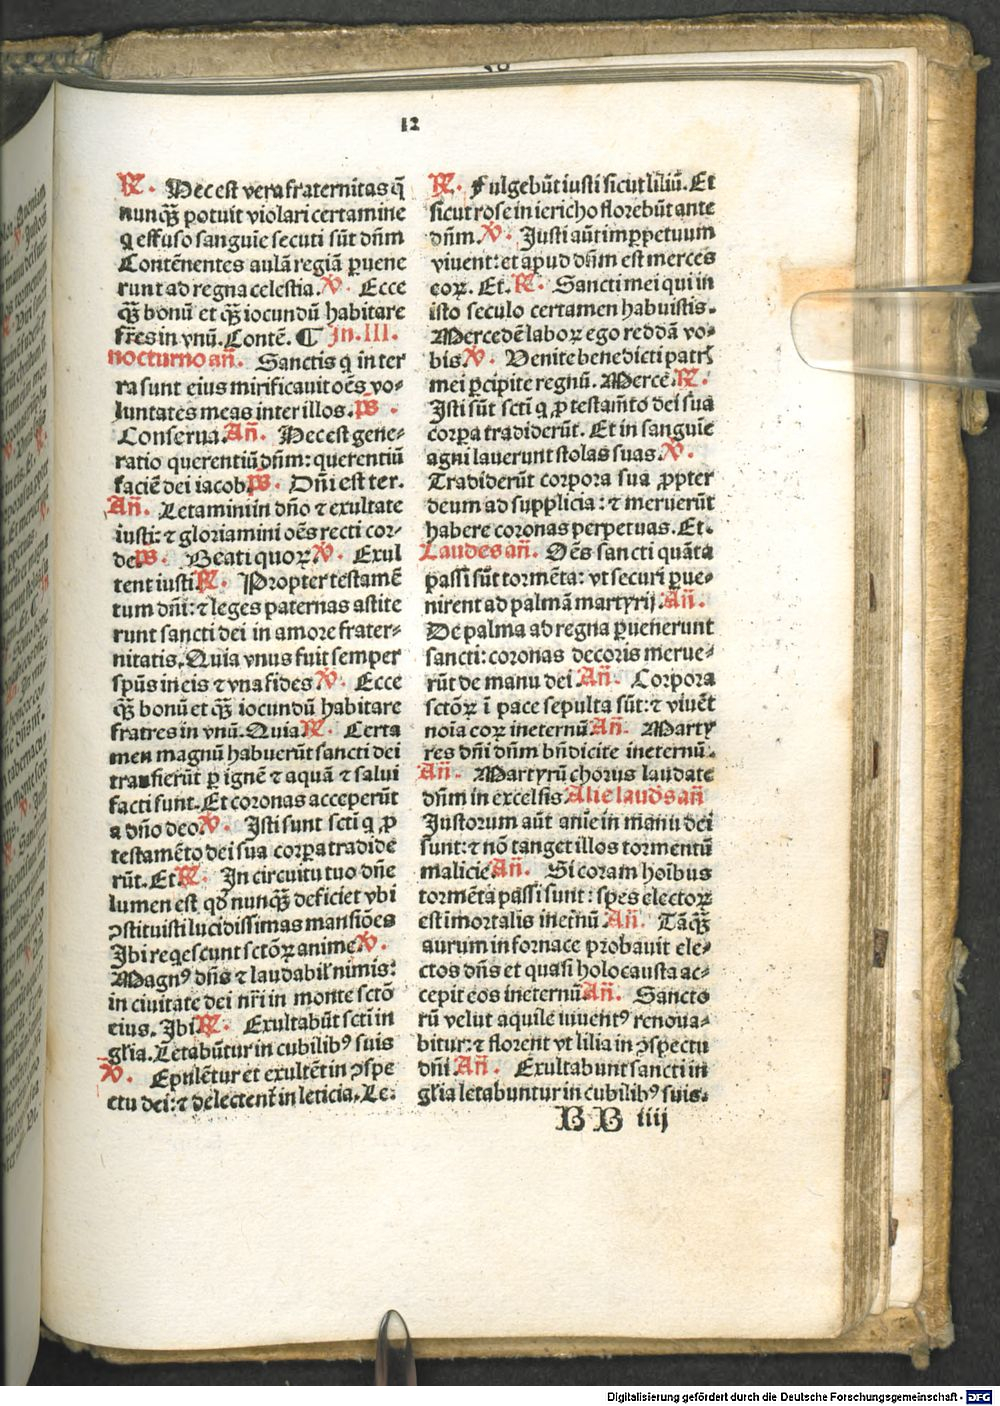 12
℟. Hec est vera fraternitas q̃
nunqꝫ potuit violari certamine
q effuso sanguĩe secuti sũt dñm
Contẽnentes aulã regiã ꝑuene
runt ad regna celestia. ℣. Ecce
qꝫ bonũ et qꝫ iocundũ habitare
fr̃es in vnũ. Contẽ. ¶ In. III.
nocturno añ. Sanctis q in ter
ra sunt eius mirificauit oẽs vo⸗
luntates meas inter illos. p̃s.
Conserua. Añ. Hec est gene⸗
ratio querentiũ dñm: querentiũ
faciẽ dei iacob. p̃s. Dñi est ter.
Añ. Letamini in dño ⁊ exultate
iusti: ⁊ gloriamini oẽs recti cor⸗
de. p̃s. Beati quoꝝ. ℣. Exul
tent iusti. ℟. Propter testamẽ
tum dñi: ⁊ leges paternas astite
runt sancti dei in amore frater⸗
nitatis. Quia vnus fuit semper
spũs in eis ⁊ vna fides. ℣. Ecce
qꝫ bonũ et qꝫ iocundũ habitare
fratres in vnũ. Quia. ℟. Certa
men magnũ habuerũt sancti dei
transierũt ꝑ ignẽ ⁊ aquã ⁊ salui
facti sunt. Et coronas acceperũt
a dño deo. ℣. Isti sunt sctĩ q ꝓ
testamẽto dei sua corꝑa tradide
rũt. Et. ℟. In circuitu tuo dñe
lumen est qď nunqꝫ deficiet vbi
ꝯstituisti lucidissimas mansiões
Ibi reqescunt sctõꝝ anime. ℣.
Magnꝰ dñs ⁊ laudabil̃ nimis:
in ciuitate dei nr̃i in monte sctõ
eius. Ibi. ℟. Exultabũt sctĩ in
gl̃ia. Letabũtur in cubilibꝰ suis
℣. Epulẽtur et exultẽt in ꝯspe
ctu dei: ⁊ delectent̃ in leticia. Le:
℟. Fulgebũt iusti sicut liliũ. Et
sicut rose in iericho florebũt ante
dñm. ℣. Justi aũt imꝑpetuum
viuent: et apud dñm est merces
eoꝝ. Et. ℟. Sancti mei qui in
isto seculo certamen habuistis.
Mercedẽ laboꝝ ego reddã vo⸗
bis. ℣. Venite benedicti patrꝭ
mei ꝑcipite regnũ. Mercẽ. ℟.
Isti sũt sctĩ q ꝓ testam̃to dei sua
corꝑa tradiderũt. Et in sanguĩe
agni lauerunt stolas suas. ℣.
Tradiderũt corpora sua ꝓpter
deum ad supplicia: ⁊ meruerũt
habere coronas perpetuas. Et.
Laudes añ. Oẽs sancti quãta
passi sũt tormẽta: vt securi ꝑue⸗
nirent ad palmã martyrij. Añ.
De palma ad regna ꝑuenerunt
sancti: coronas decoris merue⸗
rũt de manu dei. Añ. Corpora
sctõꝝ ĩ pace sepulta sũt: ⁊ viuẽt
noĩa eoꝝ ineternũ. Añ. Marty
res dñi dñm bñdicite ineternũ.
Añ. Martyrũ chorus laudate
dñm in excelsis. Alie lauds añ
Justorum aũt aniẽ in manu dei
sunt: ⁊ nõ tanget illos tormentũ
malicie. Añ. Si coram hoĩbus
tormẽta passi sunt: spes electoꝝ
est imortalis ineter̃nũ. Añ. Tãqꝫ
aurum in fornace probauit ele⸗
ctos dñs et quasi holocausta ac⸗
cepit eos ineternũ. Añ. Sancto
rũ velut aquile iuuentꝰ renoua⸗
bitur: ⁊ florent vt lilia in ꝯspectu
dñi. Añ. Exultabunt sancti in
gl̃ia letabuntur in cubilibꝰ suis.
BB iiij
Digitalisierung gefördert durch die Deutsche Forschungsgemeinschaft - DFG